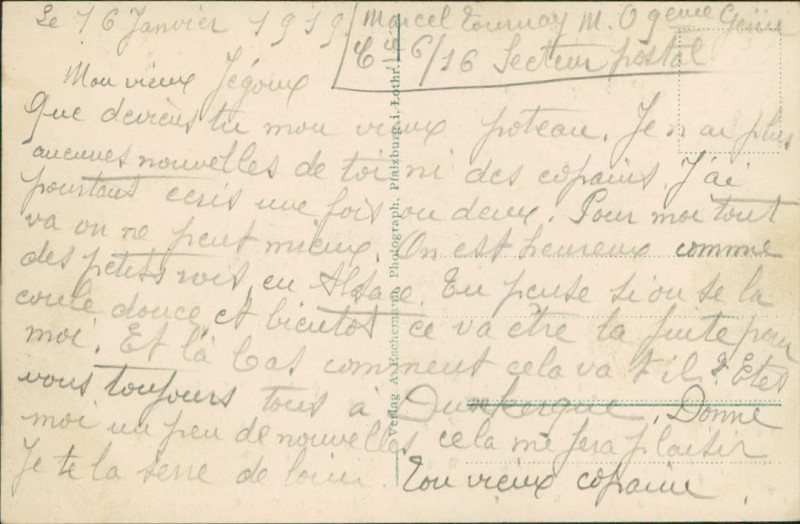 Le 16 Janvier 1919
Marcel Tournay M. O 9eme Génie
Cie 6/16 Secteur postal
Mon vieux Jégoux
Que deviens tu mon vieux poteau. Je n ai plus
aucunes nouvelles de toi ni des copains. J'ai
pourtant ecris une fois ou deux. Pour moi tout
va on ne peut mieux. On est heureux comme
des petits rois en Alsace. Tu pense si on se la
coule douce, et bientot ce va être la fuite pour
moi. Et là bas comment cela va t il ? Etes
vous toujours tous à Dunkerque. Donne
moi un peu de nouvelles cela me fera plaisir
Je te la serre de loin. Ton vieux copain.
Verlag A. Eschemann, Photograph, Pfalzburg i. Lothr.